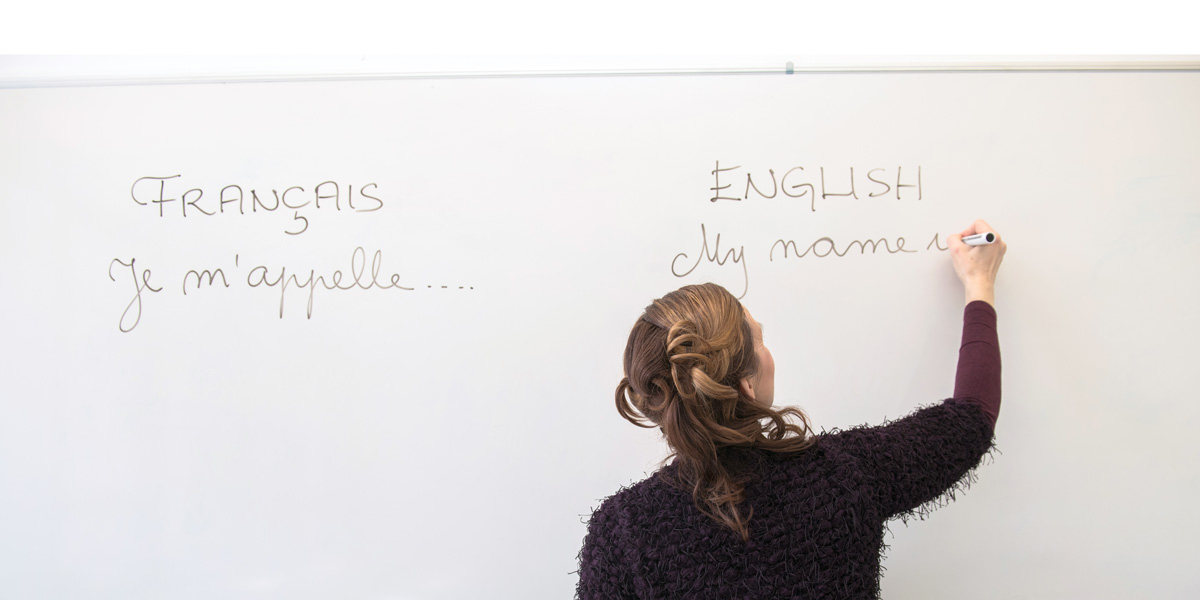 FRANÇAIS
Je m'appelle....
ENGLISH
My name